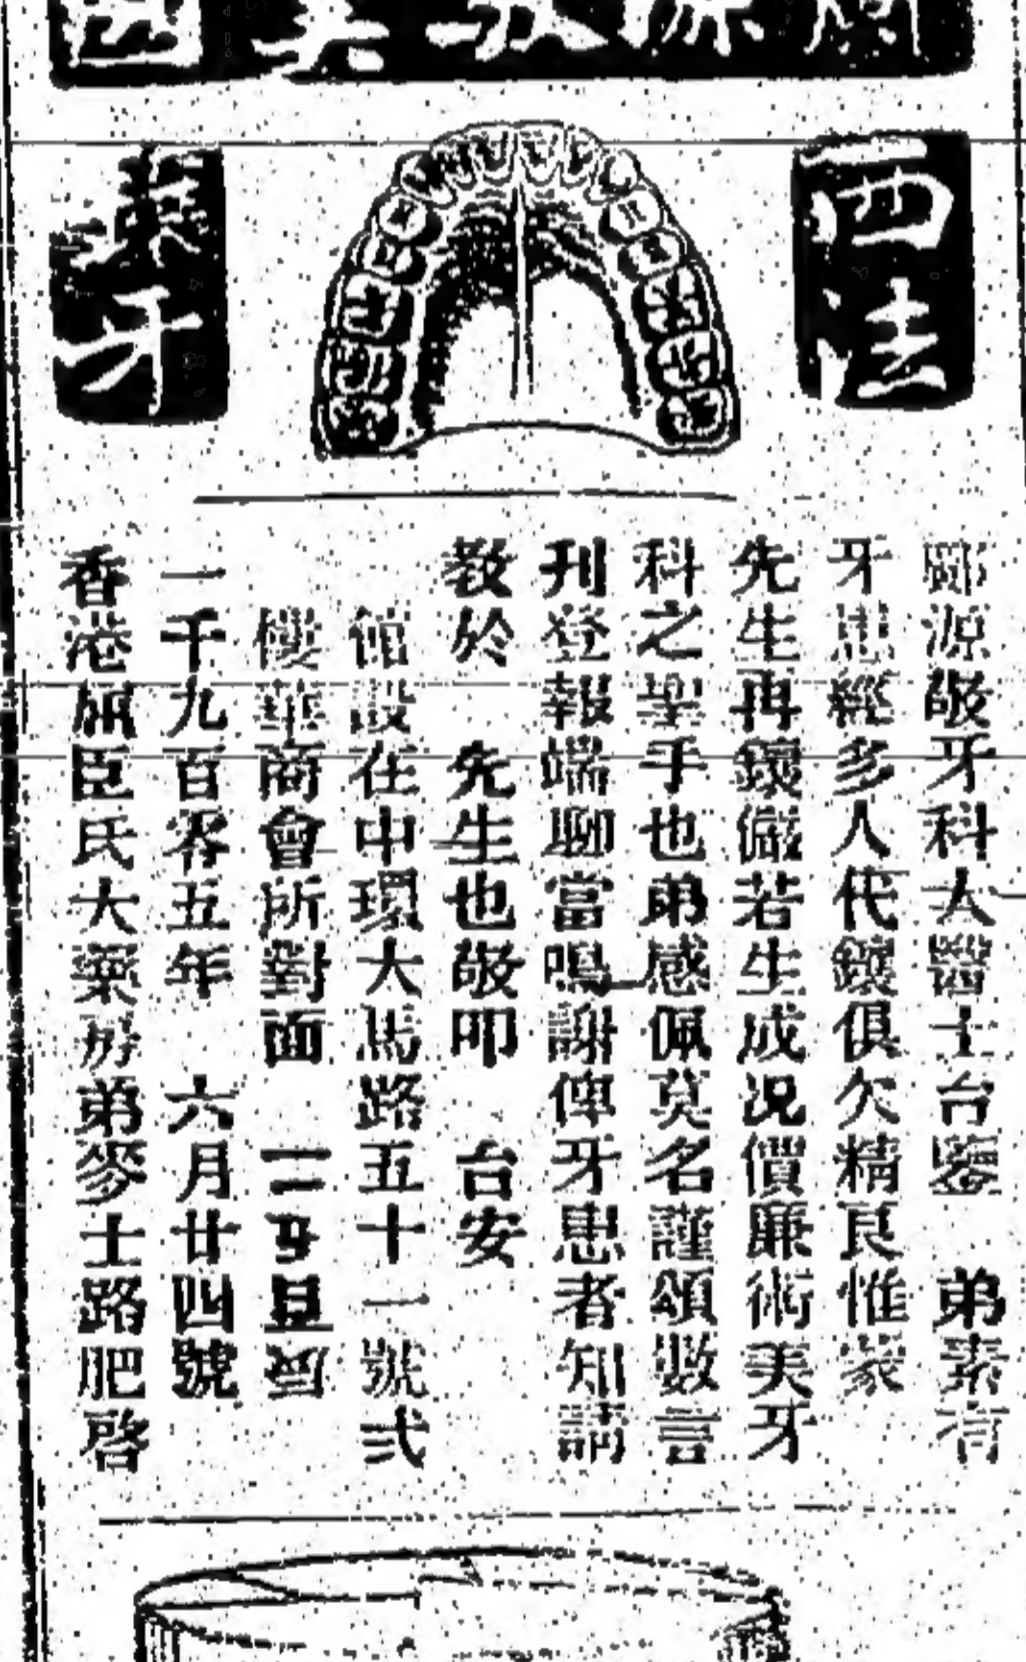 鄺源敬美國
西法
牙
鄺源敬牙科大醫士台鑒 弟素有
牙患經多人代鑲俱欠精良惟蒙
先生再鑲儼若生成况價廉術美牙
科之聖手也弟感佩莫名謹頌數言
刊登報端聊當鳴謝俾牙患者知請
教於 先生也敬叩 台安
館設在中環大馬路五十一號弍
樓華商會所對面
一千九百零五年 六月廿四號
香港屈臣氏大藥房弟麥士路肥啓